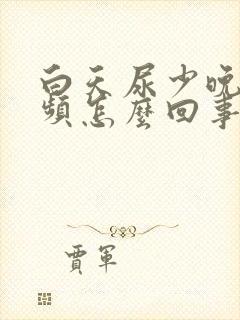 白天尿少晚
頻怎麼回事
賈軍